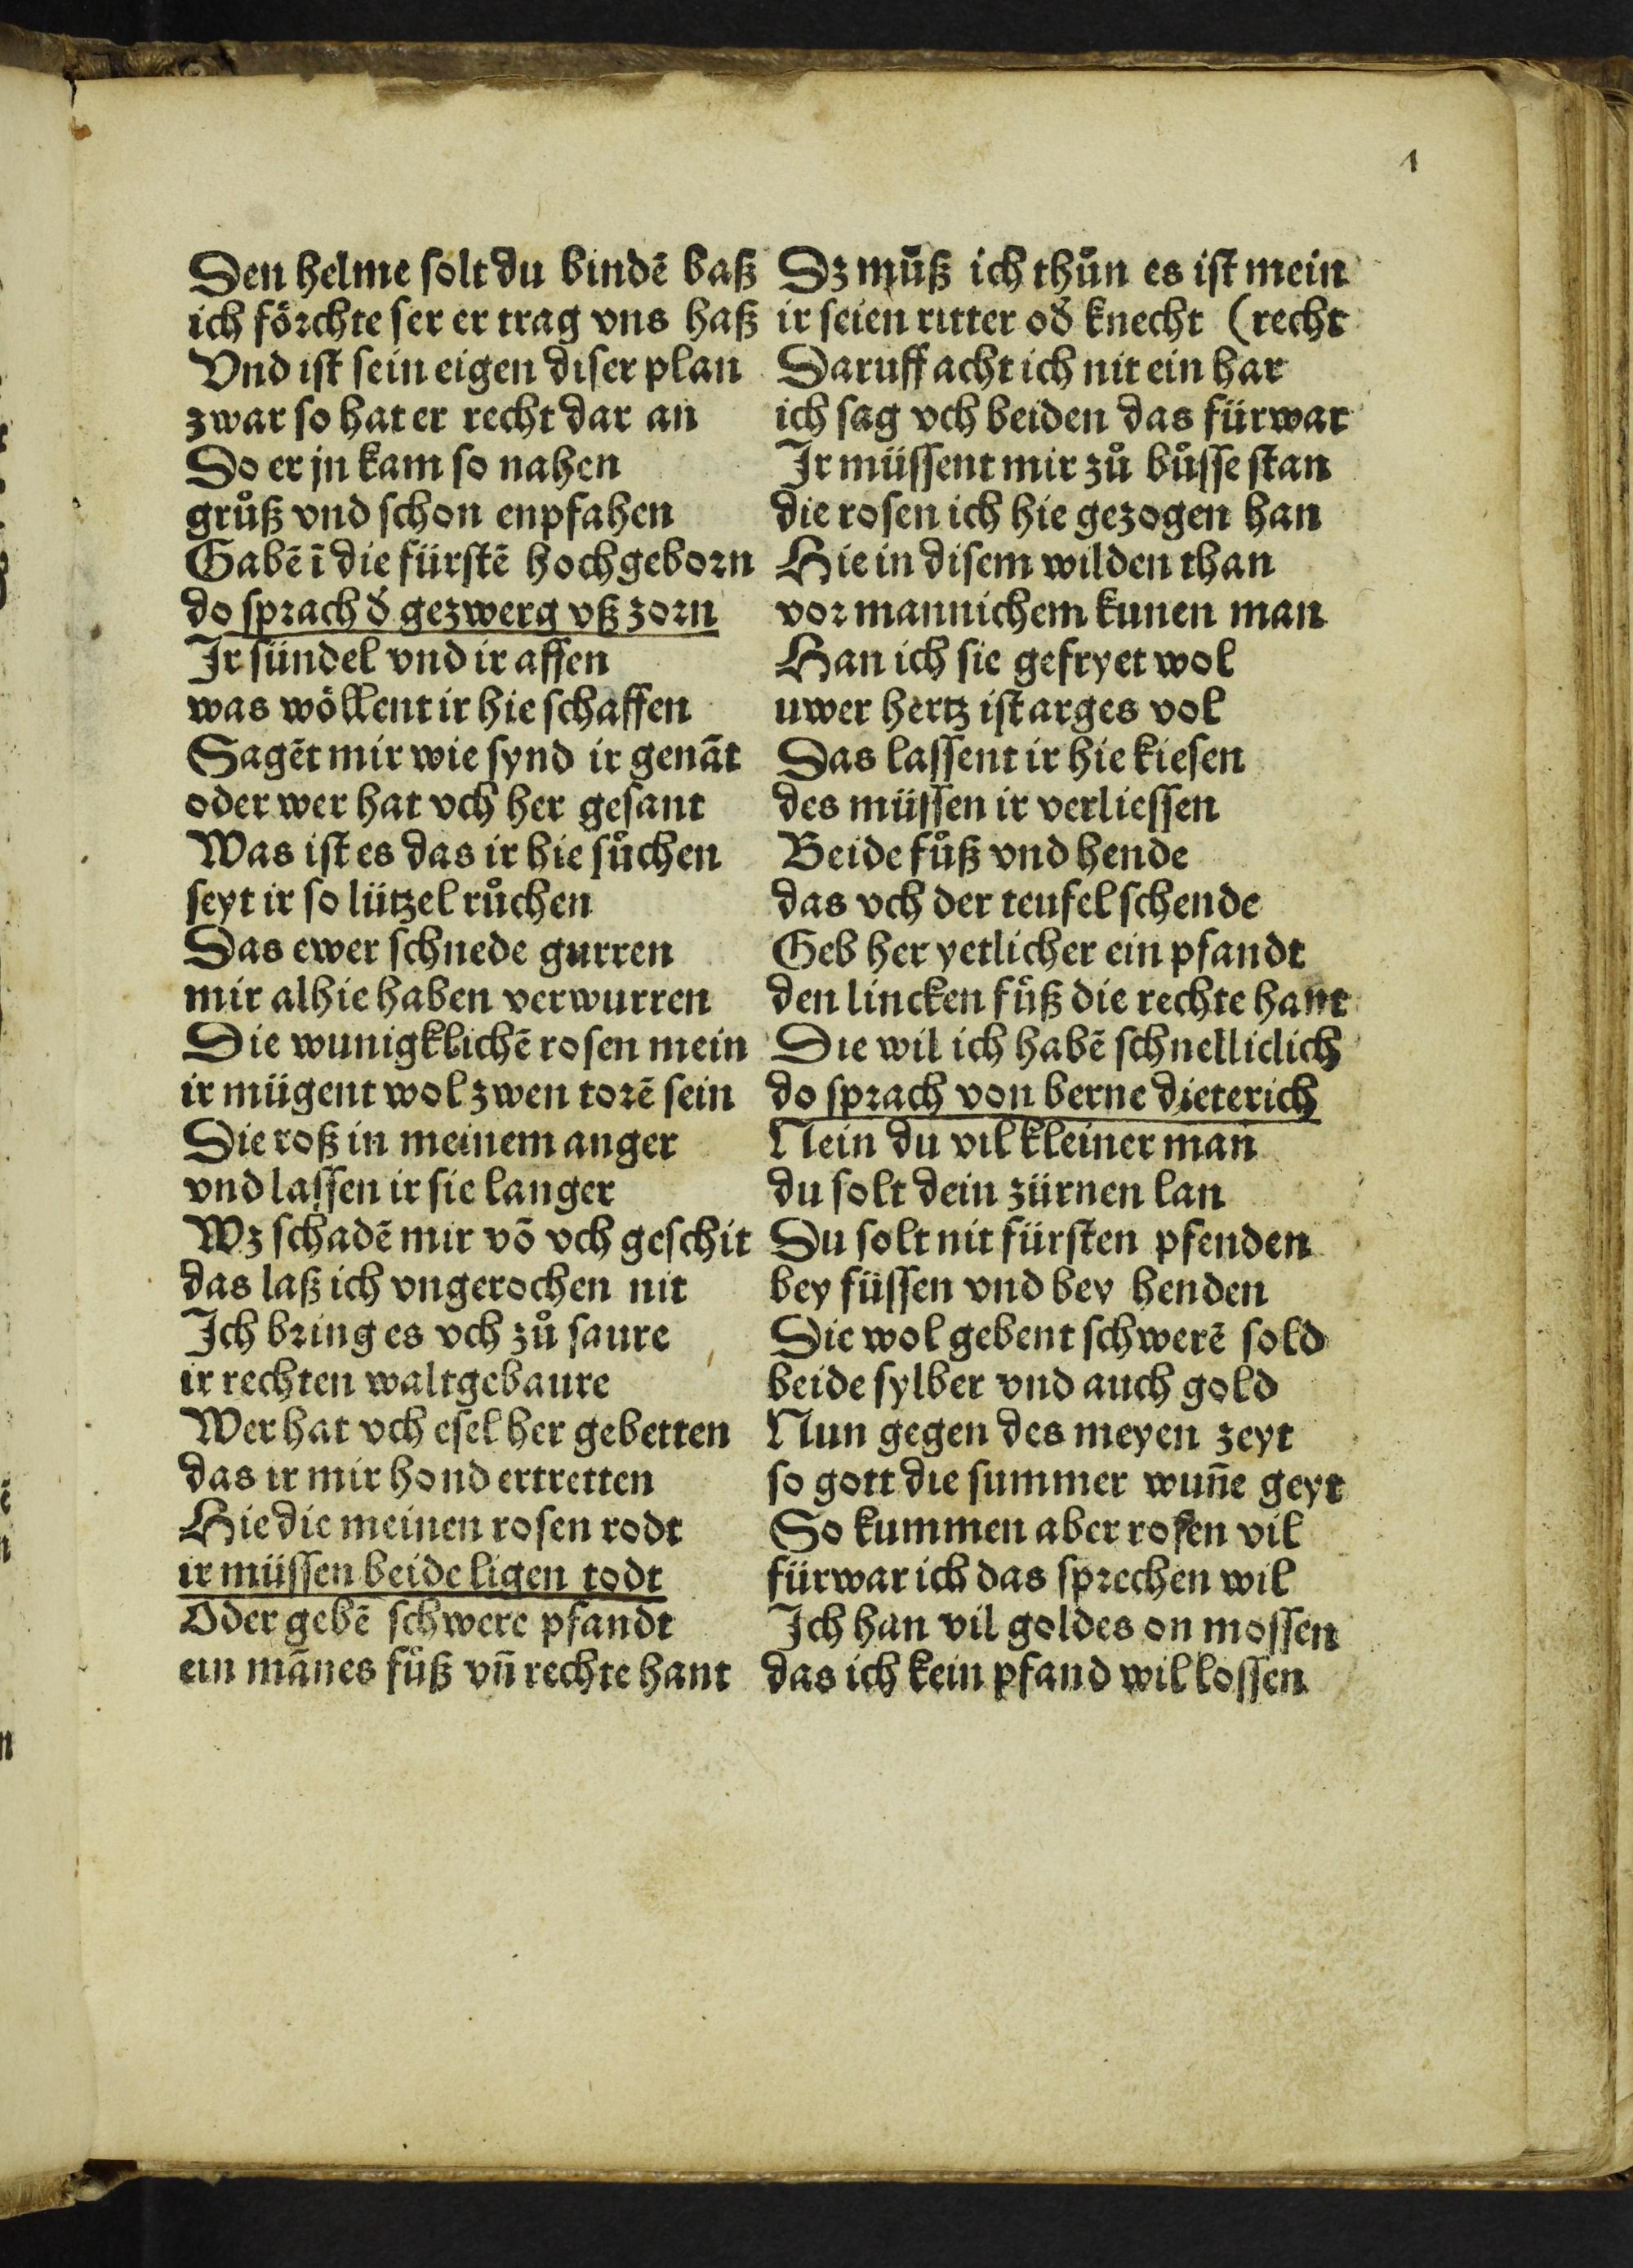 1
Den helme solt du bindē baß
ich förchte ser er trag vns haß
Vnd ist sein eigen diser plan
zwar so hat er recht dar an
Do er jn kam so nahen
grůß vnd schon enpfahen
Gabē ī die fürstē hochgeborn
do sprach d̄ gezwerg vß zorn
Ir sündel vnd ir affen
was wöllent ir hie schaffen
Sagēt mir wie synd ir genāt
oder wer hat vch her gesant
Was ist es das ir hie sůchen
seyt ir so lützel růchen
Das ewer schnede gurren
mir alhie haben verwurren
Die wunigklichē rosen mein
ir mügent wol zwen torē sein
Die roß in meinem anger
vnd lassen ir sie langer
Wz schadē mir vō vch geschit
das laß ich vngerochen nit
Ich bring es vch zů saure
ir rechten waltgebaure
Wer hat vch esel her gebetten
das ir mir hond ertretten
Hie die meinen rosen rodt
ir müssen beide ligen todt
Oder gebē schwere pfandt
ein mānes fůß vn̄ rechte hant
Dz můß ich thůn es ist mein
ir seien ritter od̄ knecht (recht
Daruff acht ich nit ein har
ich sag vch beiden das fürwar
Ir müssent mir zů bůsse stan
die rosen ich hie gezogen han
Hie in disem wilden than
vor mannichem kunen man
Han ich sie gefryet wol
uwer hertz ist arges vol
Das lassent ir hie kiesen
des müssen ir verliessen
Beide fůß vnd hende
das vch der teufel schende
Geb her yetlicher ein pfandt
den lincken fůß die rechte hant
Die wil ich habē schnelliclich
do sprach von berne dieterich
Nein du vil kleiner man
du solt dein zürnen lan
Du solt nit fürsten pfenden
bey füssen vnd bey henden
Die wol gebent schwerē sold
beide sylber vnd auch gold
Nun gegen des meyen zeyt
so gott die summer wun̄e geyt
So kummen aber rosen vil
fürwar ich das sprechen wil
Ich han vil goldes on mossen
das ich kein pfand wil lossen